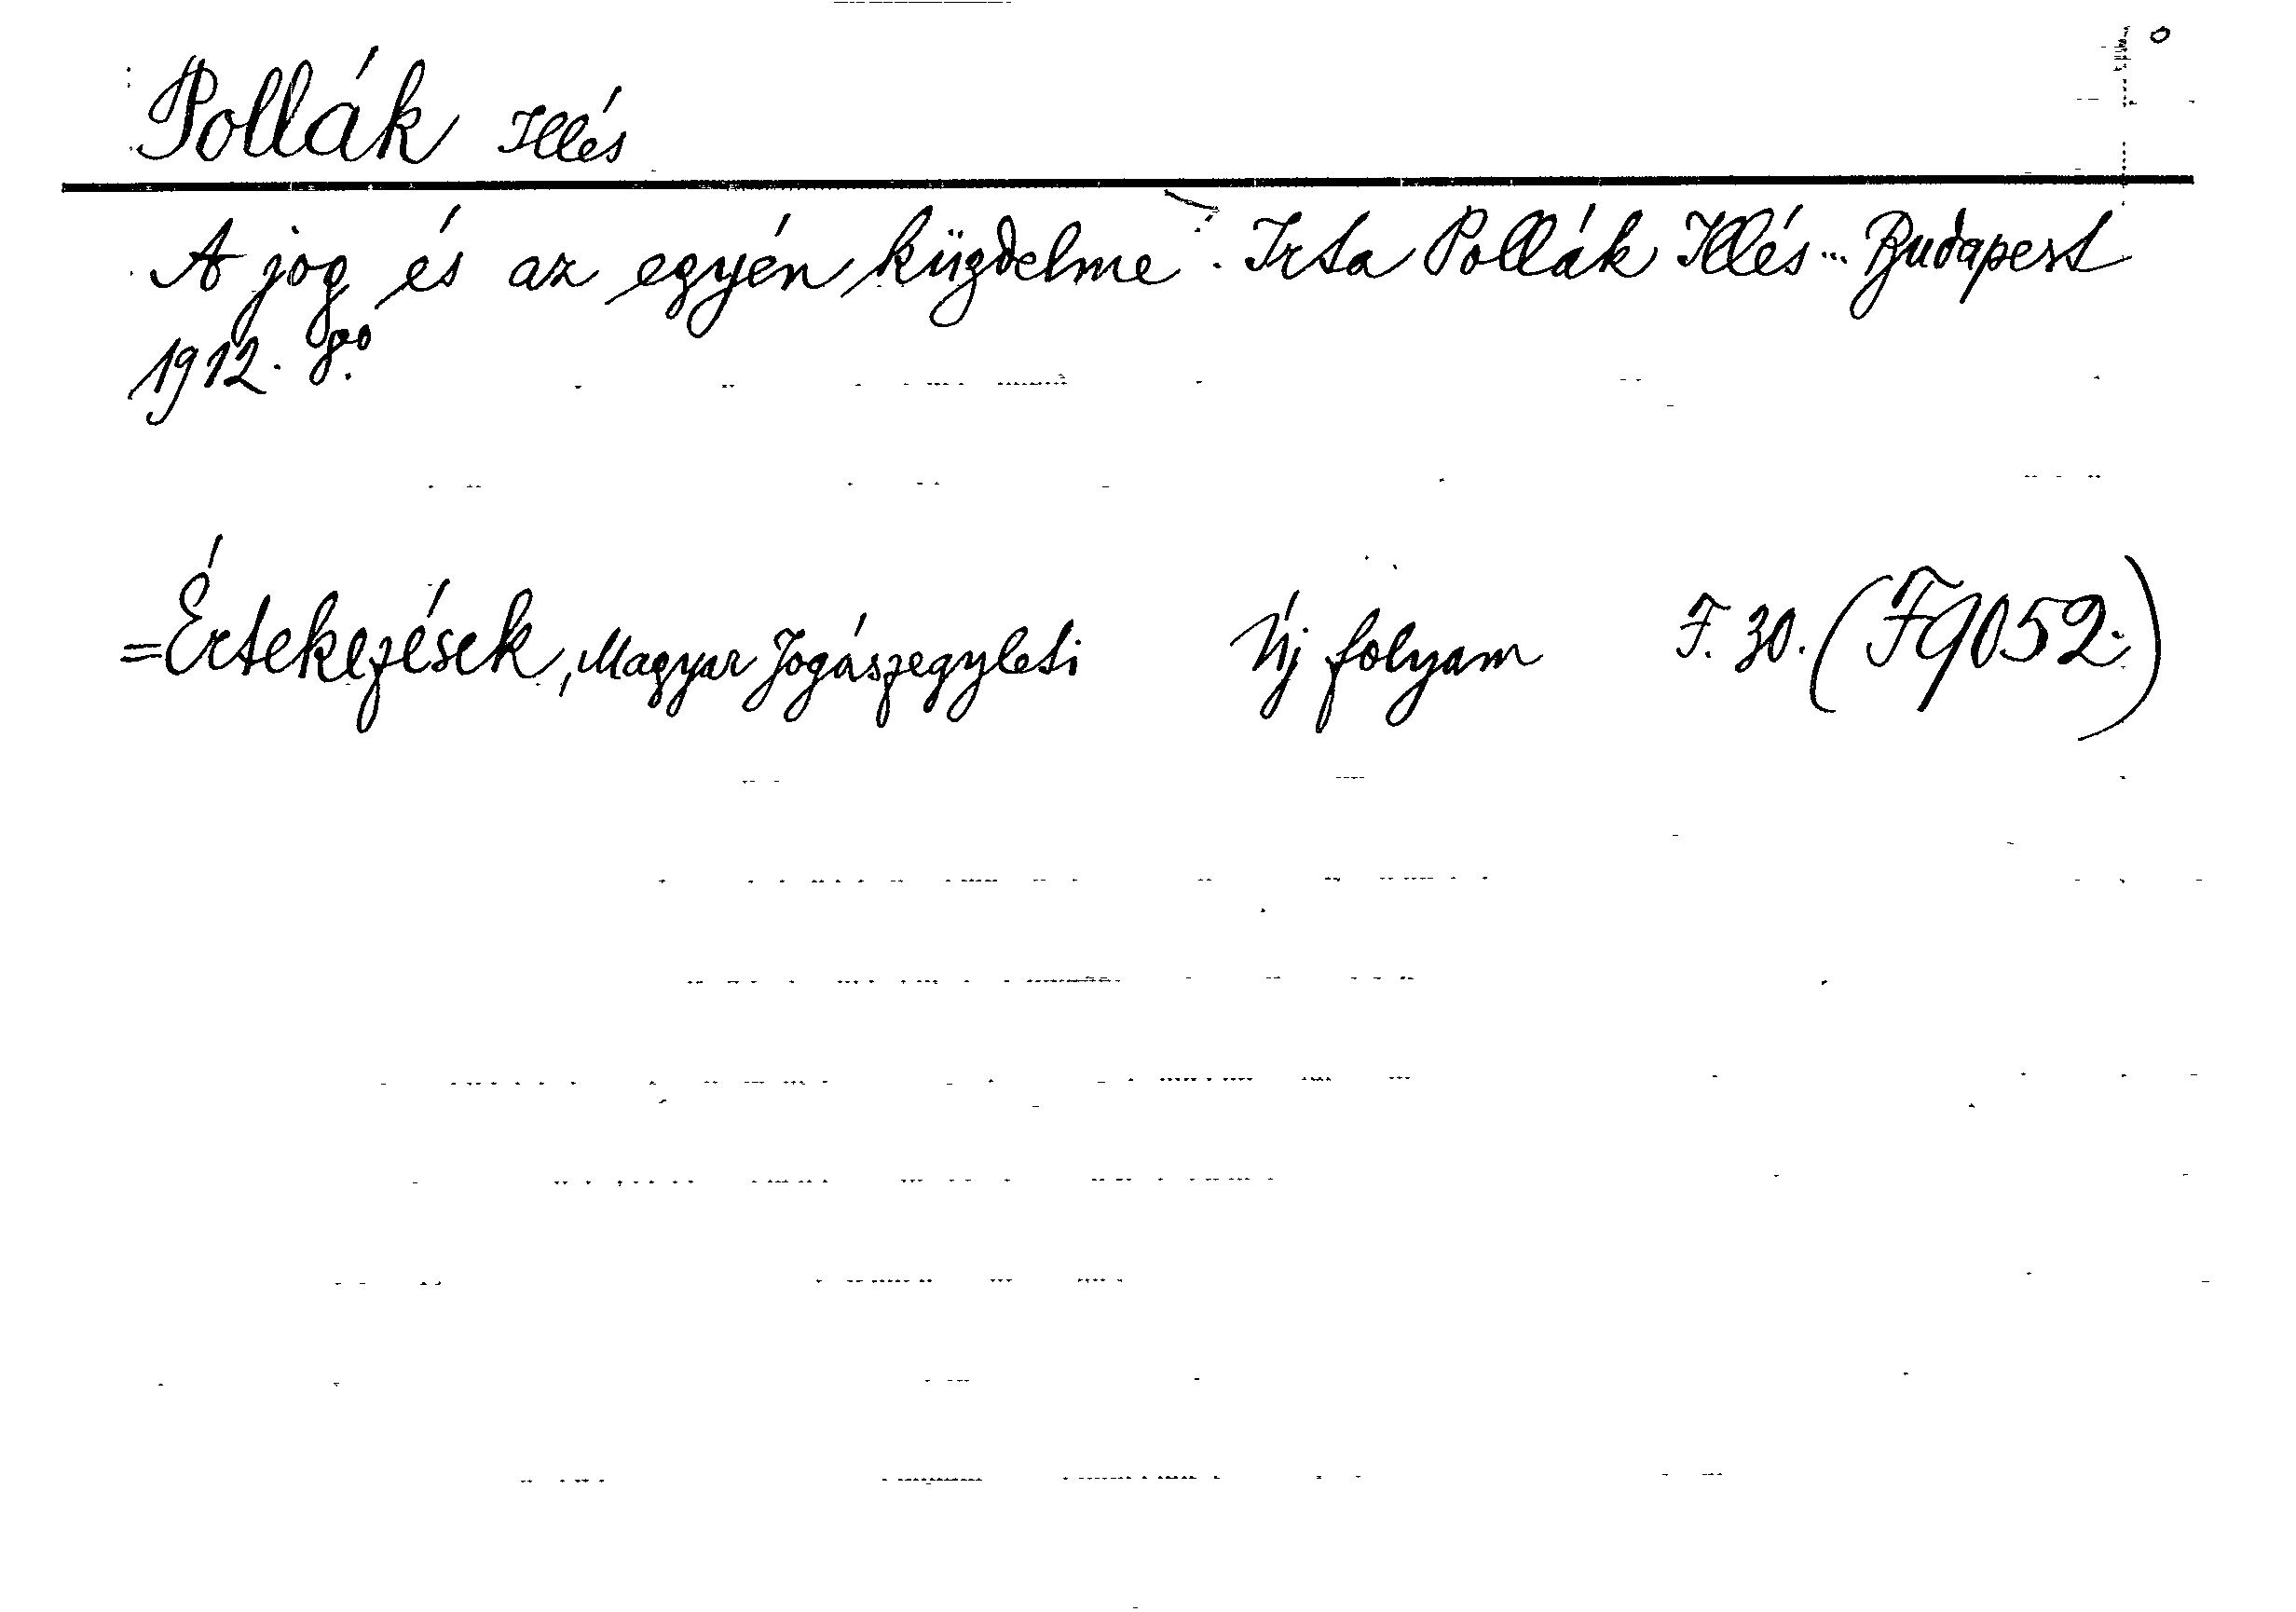 Pollák Illés
A jog és az egyén küzdelme. Irta Pollák Illés... Budapest
1912. 8°.
=Értekezések, Magyar Jogászegyleti Új folyam F. 30. (F9052.)